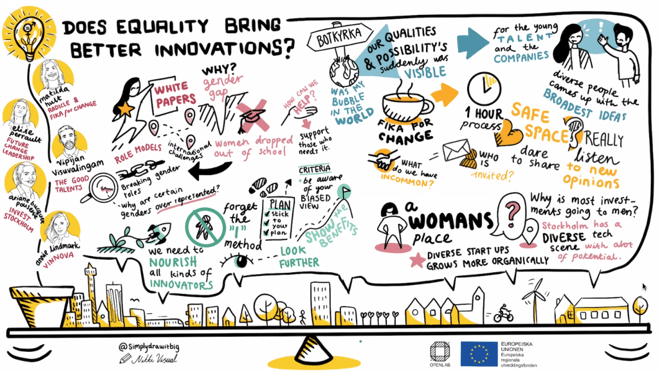 DOES EQUALITY BRING
BETTER INNOVATIONS?
matilda
hult
RADICLE &
FIKA for CHANGE
elise
perrault
FUTURE
CHANGE
LEADERSHIP
Vipiyan
Visuvalingam
THE GOOD
TALENTS
ariane
INVEST
STOCKHOLM
lindmark
VINNOVA
WHITE
PAPERS
WHY?
gender
gap
women dropped
out of school
HOW CAN WE
HELP?
support
those who
needs it.
ROLE MODELS
international
challenges
Breaking gender
roles
-Why are certain
genders over represented?
we need to
NOURISH
all kinds of
INNOVATORS
forget
the
"I"
method
PLAN
stick
to
your
plan
CRITERIA
- be aware
of your
BIASED
VIEW
LOOK
FURTHER
SHOW THE
BENEFITS
BOTKYRKA
OUR QUALITIES
& POSSIBILITY'S
suddenly was
VISIBLE
WAS MY
BUBBLE
IN THE
WORLD
for the young
TALENT
and the
COMPANIES
diverse people
comes up with the
BROADEST IDEAS
FIKA FOR
CHANGE
1 HOUR
process
SAFE
SPACE
dare
to share
REALLY
listen
to new
opinions
WHAT
do we have
INCOMMON?
WHO
is
invited?
a
WOMANS
place
DIVERSE START UPS
GROWS MORE ORGANICALLY
Why is most invest-
ments going to men?
Stockholm has a
DIVERSE tech
scene with alot
of potential.
@Simplydrawitbig
Nikki Visual
OPENLAB
EUROPEISKA
UNIONEN
Europeiska
regionala
utvecklingsfonden